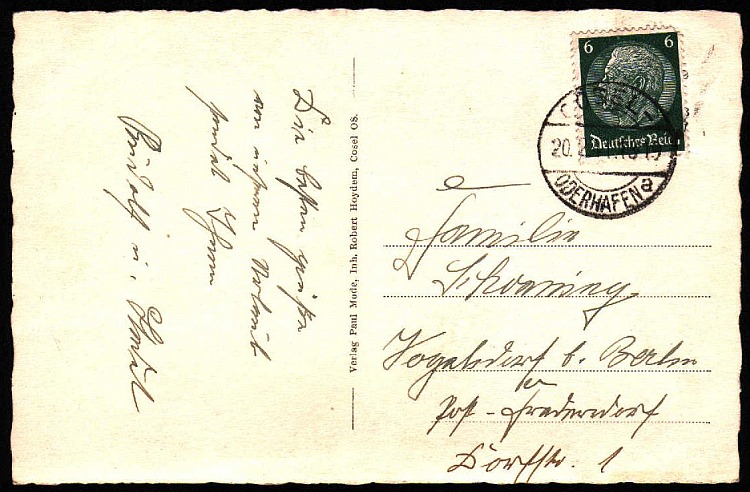 Die besten Grüße
von unserem Urlaub
sendet Ihnen
Rudolf u.
Verlag Paul Mode, Inh. Robert Hoydem, Cosel OS.
6 6
Deutsches Reich
COSEL-
20.
ODERHAFEN a
Familie
Vogelsdorf b. Berlin
Post - Fredersdorf
Dorfstr. 1